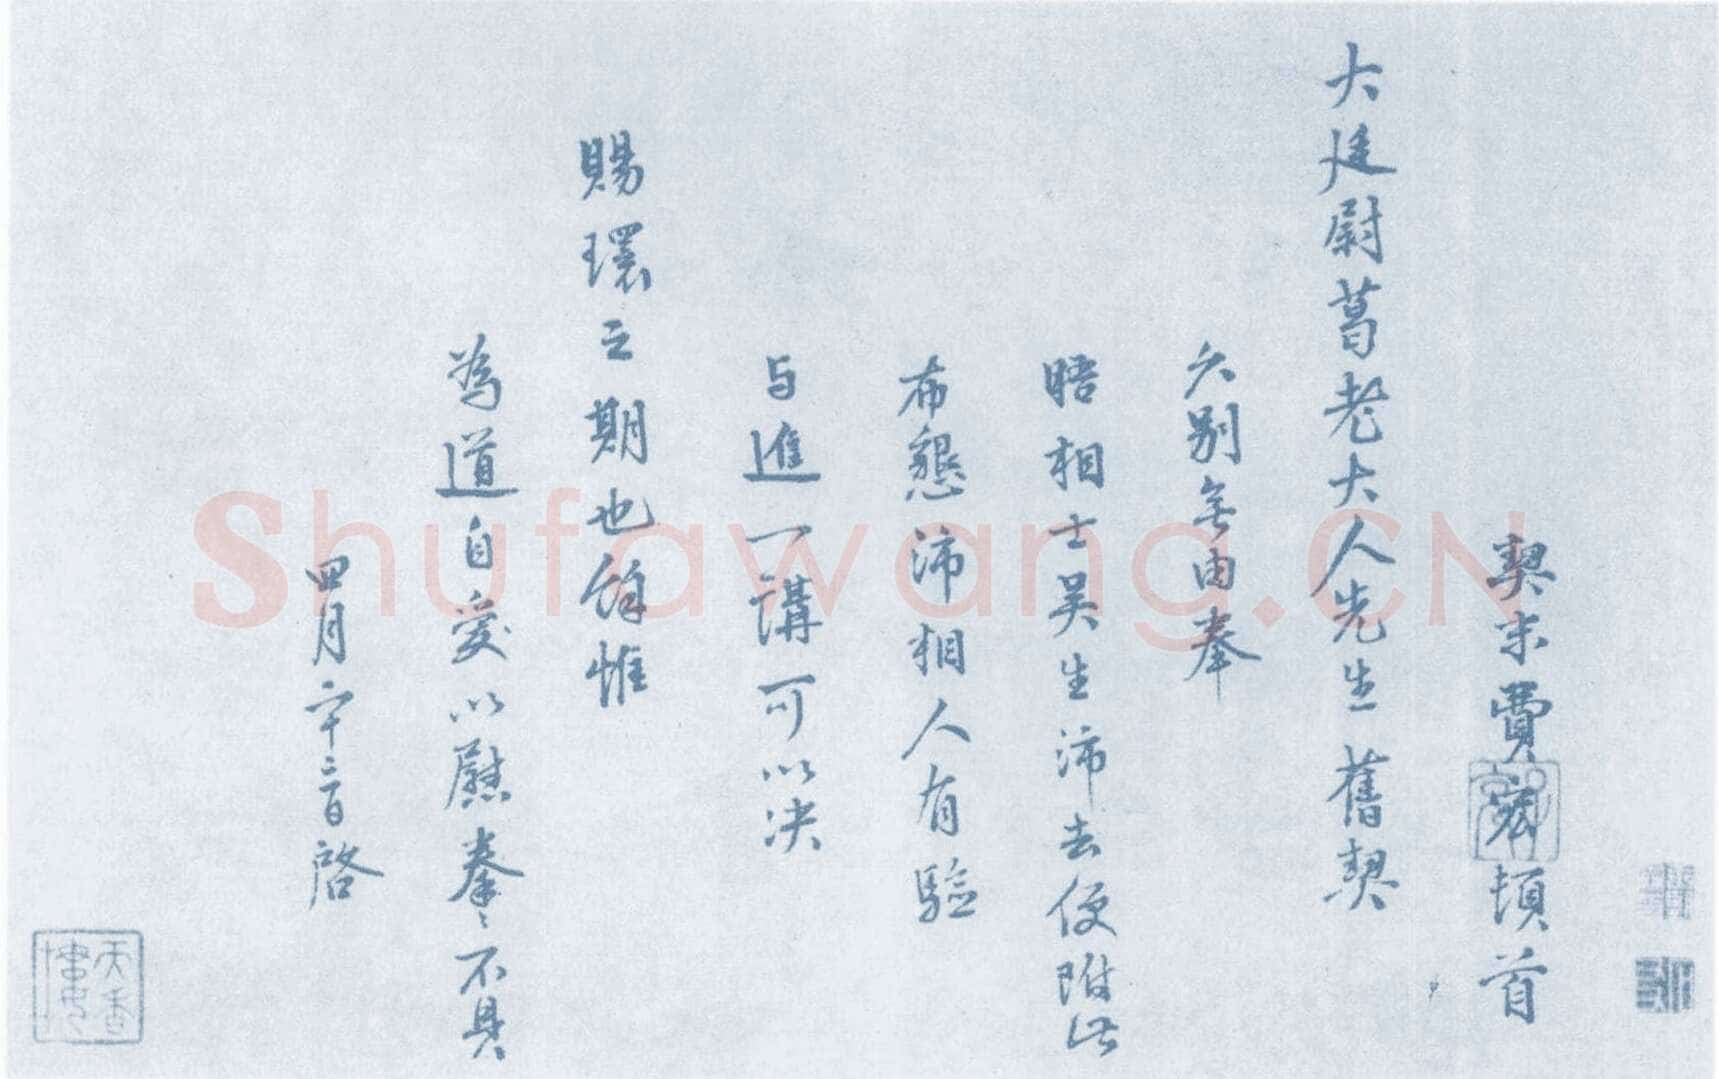 契末費宏頓首
大廷尉葛老大人先生舊契
久別無由奉
晤相士吴生沛去便附此
布懇沛相人有驗
与進一講可以决
賜環之期也餘惟
為道自愛以慰拳〻不具
四月二十二日啓
天香樓
Shufawang.CN